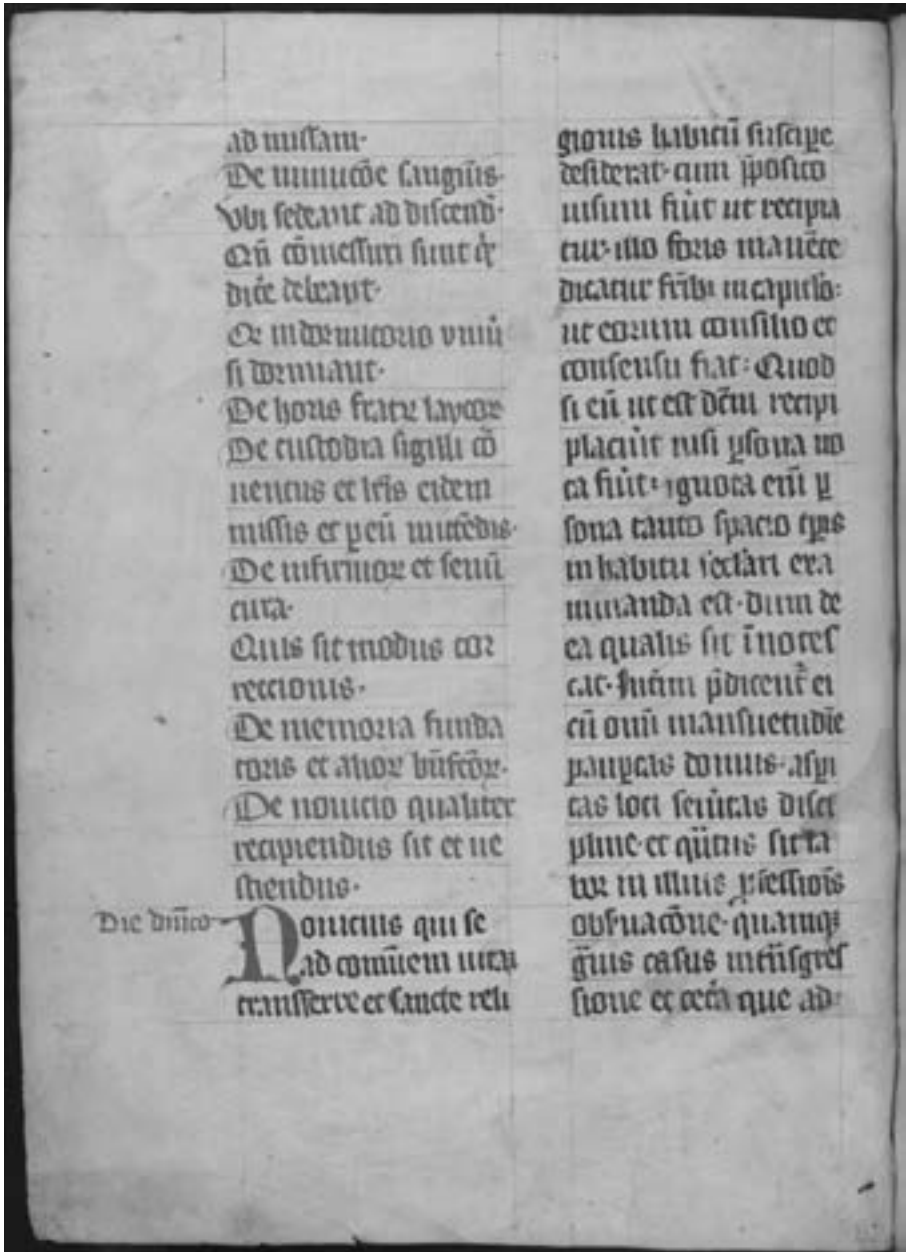 ad missam·
De minucōe sanguīs·
Vbi sedeant ad discend̄·
Qn̄ cōmessuri sunt qͥ
dicē debeant·
Qr in dormitorio vniu᷒
si dormiant·
De horis fratꝝ laycoꝝ
De custodia sigilli cō
uentus et lr̄is eidem
missis et ꝑ eū mittēdis·
De infirmoꝝ et senū
cura·
Quis sit modus cor
reccionis·
De memoria funda
toris et alioꝝ bn̄fc̄oꝝ·
De nouicio qualiter
recipiendus sit et ue
stiendus·
Die dn̄ico
Nouicius qui se
ad comūem uitā
transferre et sancte reli
gionis habitū suscipe
desiderat· cum p̄posito
uisum fūit ut recipia
tur· illo foris manēte
dicatur fr̄ibꝫ in capitl̄o:
ut eorum consilio et
consensu fiat: Quod
si eū ut est dc̄m recipi
placūit nisi ꝑsona no
ta fūit: ignota eni̅ ꝑ
sona tanto spacio tp̄is
in habitu sec̄lari exa
minanda est· dum de
ea qualis sit īnotes
cat· Int̄im p̄dicent᷑ ei
cū om̄i mansuetudīe
pauꝑtas domus· aspi
tas loci seūitas disci
pline· et qn̄tus sit la
bor in illius ꝓfessiōis
obs̄uacōne· quamqꝫ
g̃uis casus in tn̄sgres
sione et cet̄a que ad